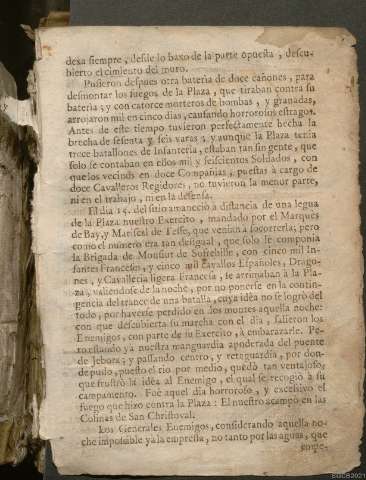 dexa siempre, desde lo baxo de la parte opuesta, descu-
bierto el cimiento del muro.
Pusieron despues otra bateria de doce cañones, para
desmontar los fuegos de la Plaza, que tiraban contra su
bateria; y con catorce morteros de bombas, y granadas,
arrojaron mil en cinco dias, causando horrorosos estragos.
Antes de este tiempo tuvieron perfectamente hecha la
brecha de sesenta y seis varas; y aunque la Plaza tenia
trece batallones de Infanteria, estaban tan sin gente, que
solo se contaban en ellos mil y seiscientos Soldados, con
que los vecinos en doce Compañias, puestas à cargo de
doce Cavalleros Regidores, no tuvieron la menor parte,
ni en el trabajo, ni en la defensa.
El dia 15. del sitio amaneciò à distancia de una legua
de la Plaza nuestro Exercito, mandado por el Marques
de Bay, y Mariscal de Tesse, que venian à socorrerla; pero
como el numero era tan desigual, que solo se componia
la Brigada de Monsiur de Sofrebille, con cinco mil In-
fantes Franceses, y cinco mil Cavallos Españoles, Drago-
nes, y Cavalleria ligera Francesa, se arrimaban à la Pla-
za, valiendose de la noche, por no ponerse en la contin-
gencia del trance de una batalla, cuya idèa no se logrò del
todo, por haverse perdido en los montes aquella noche:
con que descubierta su marcha con el dia, salieron los
Enemigos, con parte de su Exercito, à embarazarle. Pe-
ro estando yà nuestra manguardia apoderada del puente
de Jebora; y passando centro, y retaguardia, por don-
de pudo, puesto el rio por medio, quedò tan ventajoso,
que frustrò la idèa al Enemigo, el qual se recogiò à su
campamento. Fue aquel dia horroroso, y excessivo el
fuego que hizo contra la Plaza: El nuestro acampò en las
Colinas de San Christoval.
Los Generales Enemigos, considerando aquella no-
che impossible yà la empressa, no tanto por las aguas, que
empe-